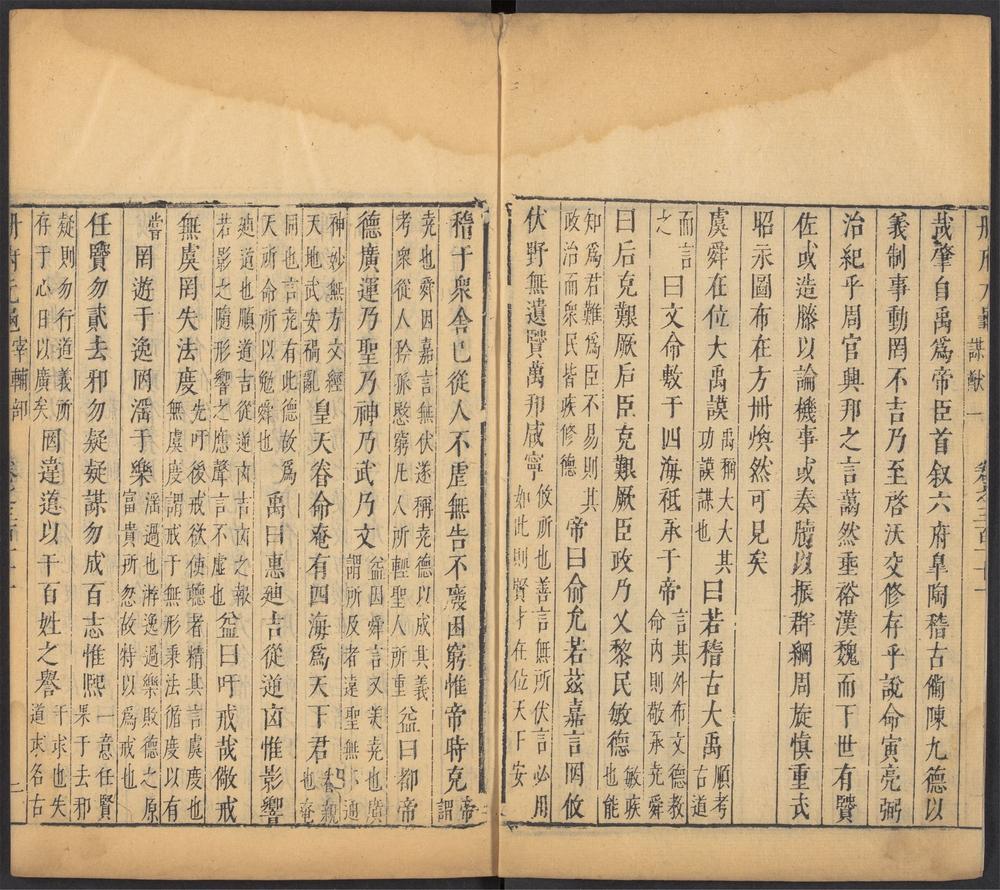 冊府元龜 謀猷一 卷之三百一十一
哉肇自禹爲帝臣首叙六府臯陶稽古備陳九德以
義制事動罔不吉乃至啓沃交修存乎說命寅亮弼
治紀乎周官興邦之言藹然垂裕漢魏而下世有賢
佐或造膝以論機事或奏牘以振群綱周旋慎重式
昭示圖布在方冊煥然可見矣
虞舜在位大禹謨禹稱大大其功謨謀也曰若稽古大禹順考古道
而言之曰文命敷于四海祗承于帝言其外布文德教命內則敬承堯舜
曰后克艱厥后臣克艱厥臣政乃乂黎民敏德敏疾也能
知爲君難爲臣不易則其政治而衆民皆疾修德帝曰俞允若茲嘉言罔攸
伏野無遺賢萬邦咸寧攸所也善言無所伏言必用如此則賢才在位天下安
稽于衆舍巳從人不虐無告不廢困窮惟帝時克帝謂
堯也舜因嘉言無伏遂稱堯德以成其義考衆從人矜孤愍窮凡人所輕聖人所重益曰都帝
德廣運乃聖乃神乃武乃文益因舜言又美堯也廣謂所及者遠聖無不通
神妙無方文經天地武安禍亂皇天眷命奄有四海爲天下君眷視也奄
同也言堯有此德故爲天所命所以勉舜也禹曰惠廸吉從逆凶惟影響
廸道也順道吉從逆凶吉凶之報若影之隨形響之應聲言不虛也益曰吁戒哉儆戒
無虞罔失法度先吁後戒欲使聽者精其言虞度也無虞度謂戒于無形乗法循度以有
嘗罔遊于逸罔滛于樂滛過也遊逸過樂敗德之原富貴所忽故特以爲戒也
任賢勿貳去邪勿疑疑謀勿成百志惟熙一意任賢果于去邪
疑則勿行道義所存于心日以廣矣罔違道以干百姓之譽干求也失道求名古
冊府元龜 宰輔部 卷之三百一十一 二